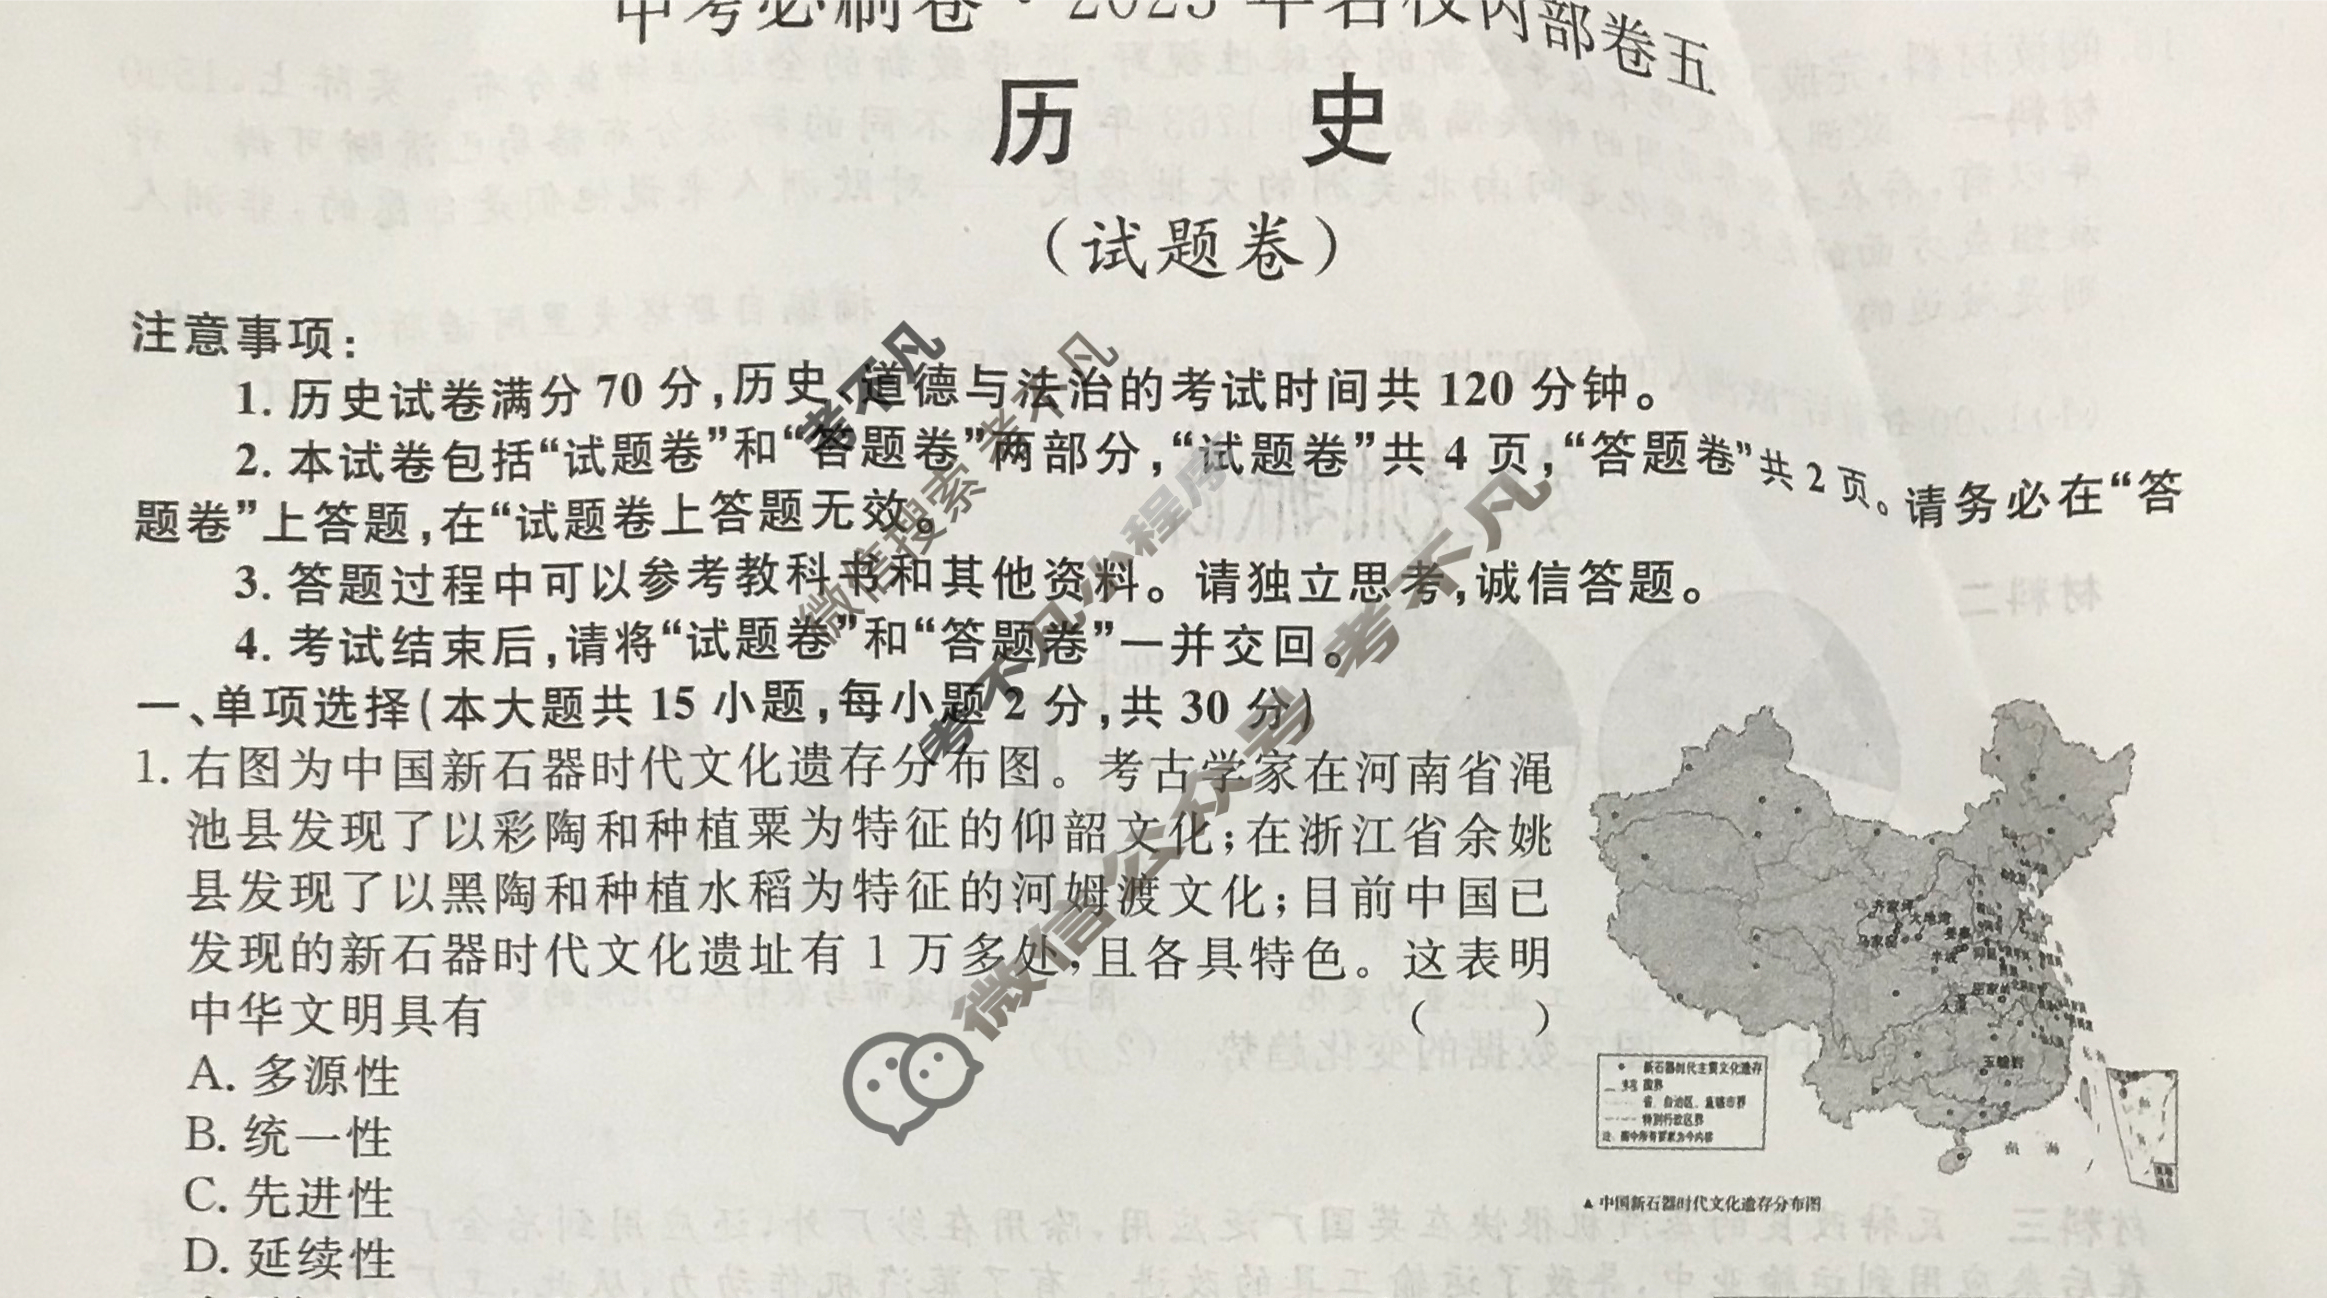 中考必刷卷·2023年名校内部卷五
历 史
（试题卷）
注意事项：
1. 历史试卷满分 70 分,历史、道德与法治的考试时间共 120 分钟。
2. 本试卷包括“试题卷”和“答题卷”两部分,“试题卷”共 4 页,“答题卷”共 2 页。请务必在“答
题卷”上答题,在“试题卷上答题无效。
3. 答题过程中可以参考教科书和其他资料。请独立思考,诚信答题。
4. 考试结束后,请将“试题卷”和“答题卷”一并交回。
一、单项选择(本大题共 15 小题,每小题 2 分,共 30 分)
1. 右图为中国新石器时代文化遗存分布图。考古学家在河南省渑
池县发现了以彩陶和种植粟为特征的仰韶文化;在浙江省余姚
县发现了以黑陶和种植水稻为特征的河姆渡文化;目前中国已
发现的新石器时代文化遗址有 1 万多处,且各具特色。这表明
中华文明具有 （ ）
A. 多源性
B. 统一性
C. 先进性
D. 延续性
齐家坪
大地湾
马家窑
姜寨
半坡
仰韶
屈家岭
大溪
南 海
新石器时代主要文化遗存
国界
省、自治区、直辖市界
特别行政区界
▲ 中国新石器时代文化遗存分布图
考不凡
微信搜索 考不凡
考不凡小程序
微信公众号 考不凡